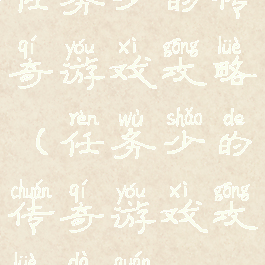 任务少的传
qí yóu xì gōng lüè
奇游戏攻略
rèn wù shǎo de
(任务少的
chuán qí yóu xì gōng
传奇游戏攻
lüè dà quán